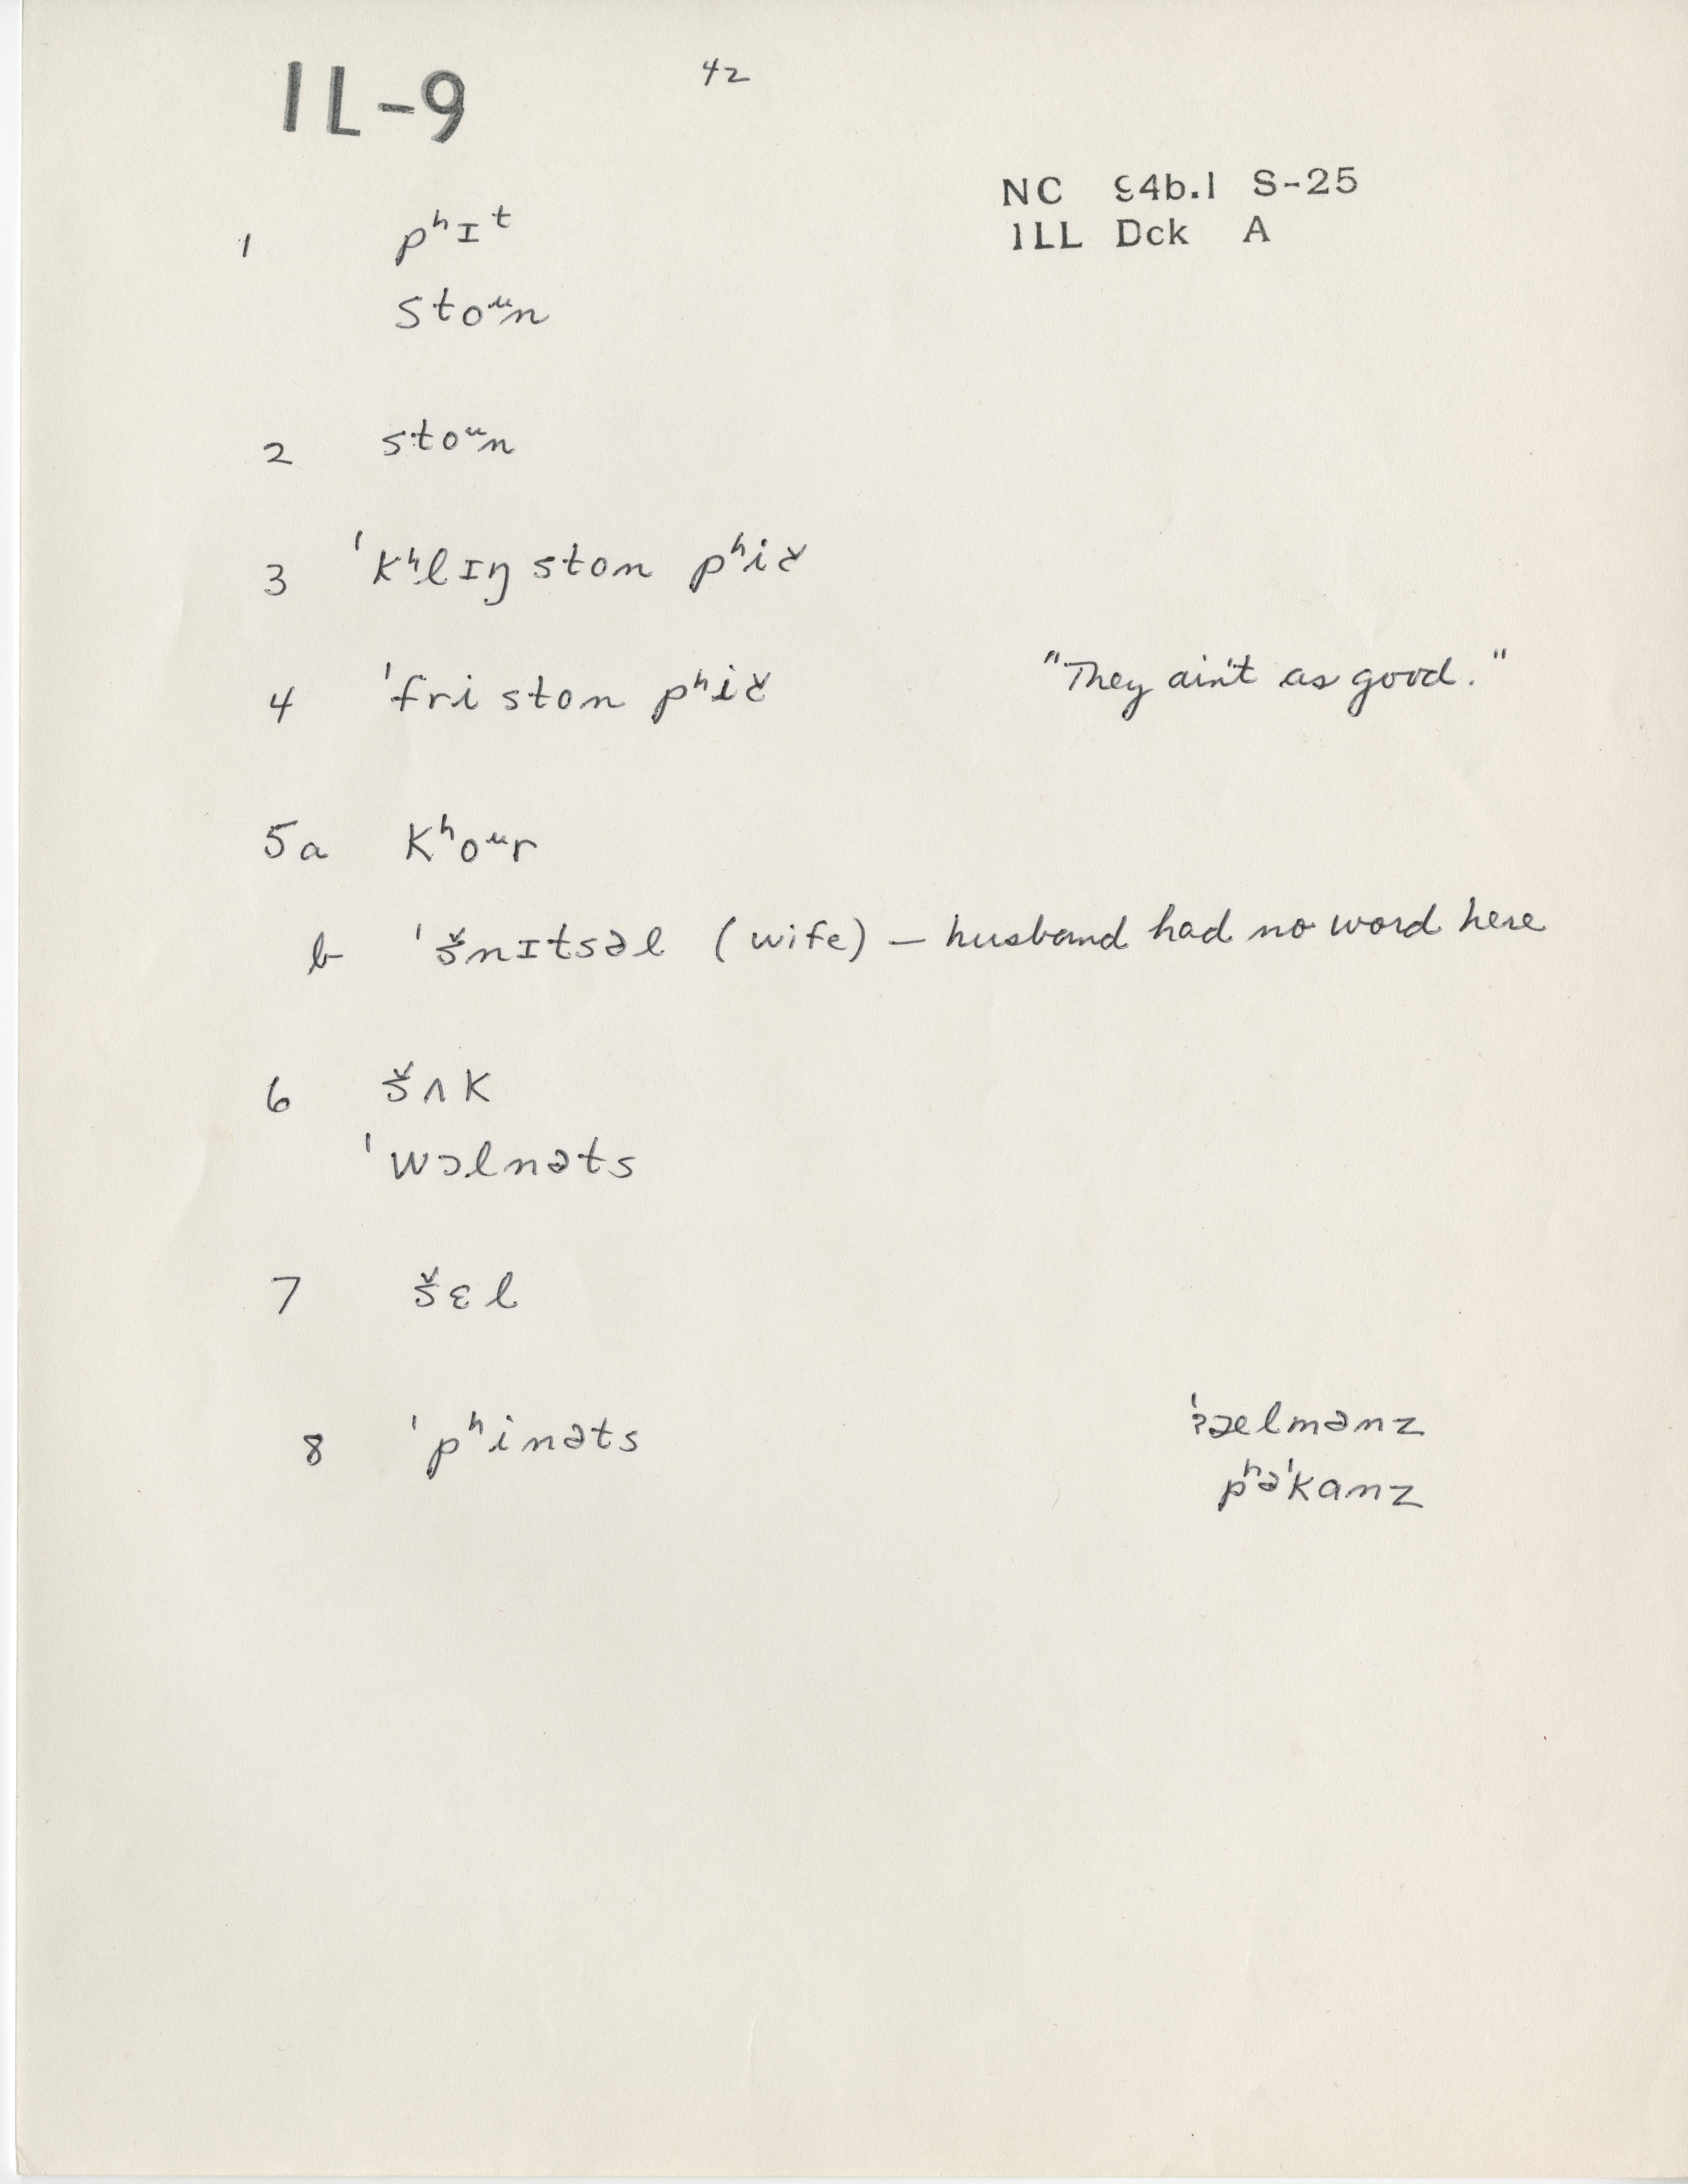 IL-9 42
NC 94b.1 S-25
ILL Dck A
1 pʰɪᵗ
stoᵘn
2 stoᵘn
3 ˈkʰlɪŋ ston pʰič
4 ˈfri ston pʰič "They ain't as good."
5a kʰoᵘr
b ˈšnɪtsəl (wife) – husband had no word here
6 šʌk
ˈwɔlnəts
7 šɛl
8 ˈpʰinəts ˈʔælmənz
pʰəˈkanz